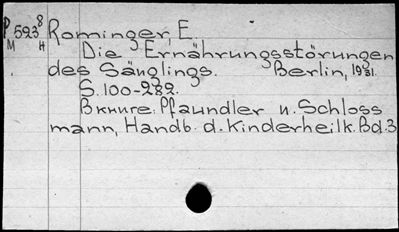 P 523 8 Rominger, E.
M H Die Ernährungsstörungen
des Säuglings. Berlin, 1931.
S. 100-282.
В книге: Pfaundler u. Schloss
mann, Handb. d. Kinderheilk. Bd. 3